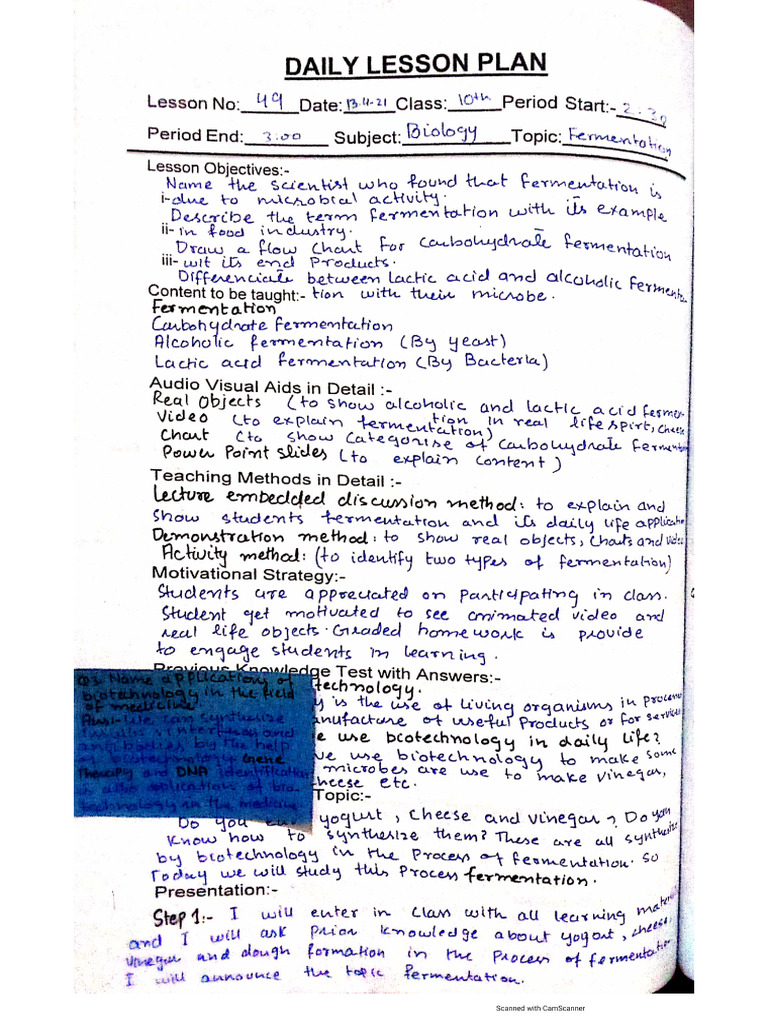 DAILY LESSON PLAN
Lesson No: 49 Date: 13-4-21 Class: 10th Period Start:- 2:30
Period End: 3:00 Subject: Biology Topic: Fermentation
Lesson Objectives:-
Name the scientist who found that fermentation is
i- due to microbial activity.
Describe the term fermentation with its example
ii- in food industry.
Draw a flow chart for carbohydrate fermentation
iii- wit its end Products.
Differenciate between lactic acid and alcoholic fermenta-
Content to be taught:- tion with their microbe.
Fermentation
Carbohydrate fermentation
Alcoholic fermentation (By yeast)
Lactic acid fermentation (By Bacteria)
Audio Visual Aids in Detail :-
Real Objects (to show alcoholic and lactic acid fermen-
tion in real life spirt, cheese
Video (to explain fermentation)
Chart (to show Categorise of Carbohydrate fermentation
Power Point slides (to explain content)
Teaching Methods in Detail :-
Lecture embedded discussion method: to explain and
show students fermentation and its daily life application
Demonstration method: to show real objects, charts and video
Activity method: (to identify two types of fermentation)
Motivational Strategy:-
Students are appreciated on participating in class.
Student get motivated to see animated video and
real life objects. Graded homework is provide
to engage students in learning.
Previous Knowledge Test with Answers:-
Q3. Name application of
biotechnology in the field
of medicine.
Ans:- We can synthesize
insulin, interferon and
antibodies by the help
of biotechnology Gene
Therapy and DNA identification
is also application of bio-
technology in the medicine
technology.
is the use of living organisms in process
manufacture of useful Products or for services
use bcotechnology in daily life?
we use biotechnology to make some
microbes are use to make vinegar,
cheese etc.
Topic:-
Do you eat yogurt, cheese and vinegar? Do you
know how to synthesize them? These are all synthesize
by biotechnology in the Process of fermentation. So
Today we will study this Process fermentation.
Presentation:-
Step 1:- I will enter in class with all learning material
and I will ask prior knowledge about yogurt, cheese,
vinegar and dough formation in the Process of fermentation
I will announce the topic fermentation.
Scanned with CamScanner